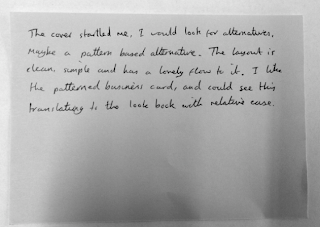 The cover startled me, I would look for alternatives.
Maybe a pattern based alternative. The layout is
clean, simple and has a lovely flow to it. I like
the patterned business card, and could see this
translating to the look book with relative ease.